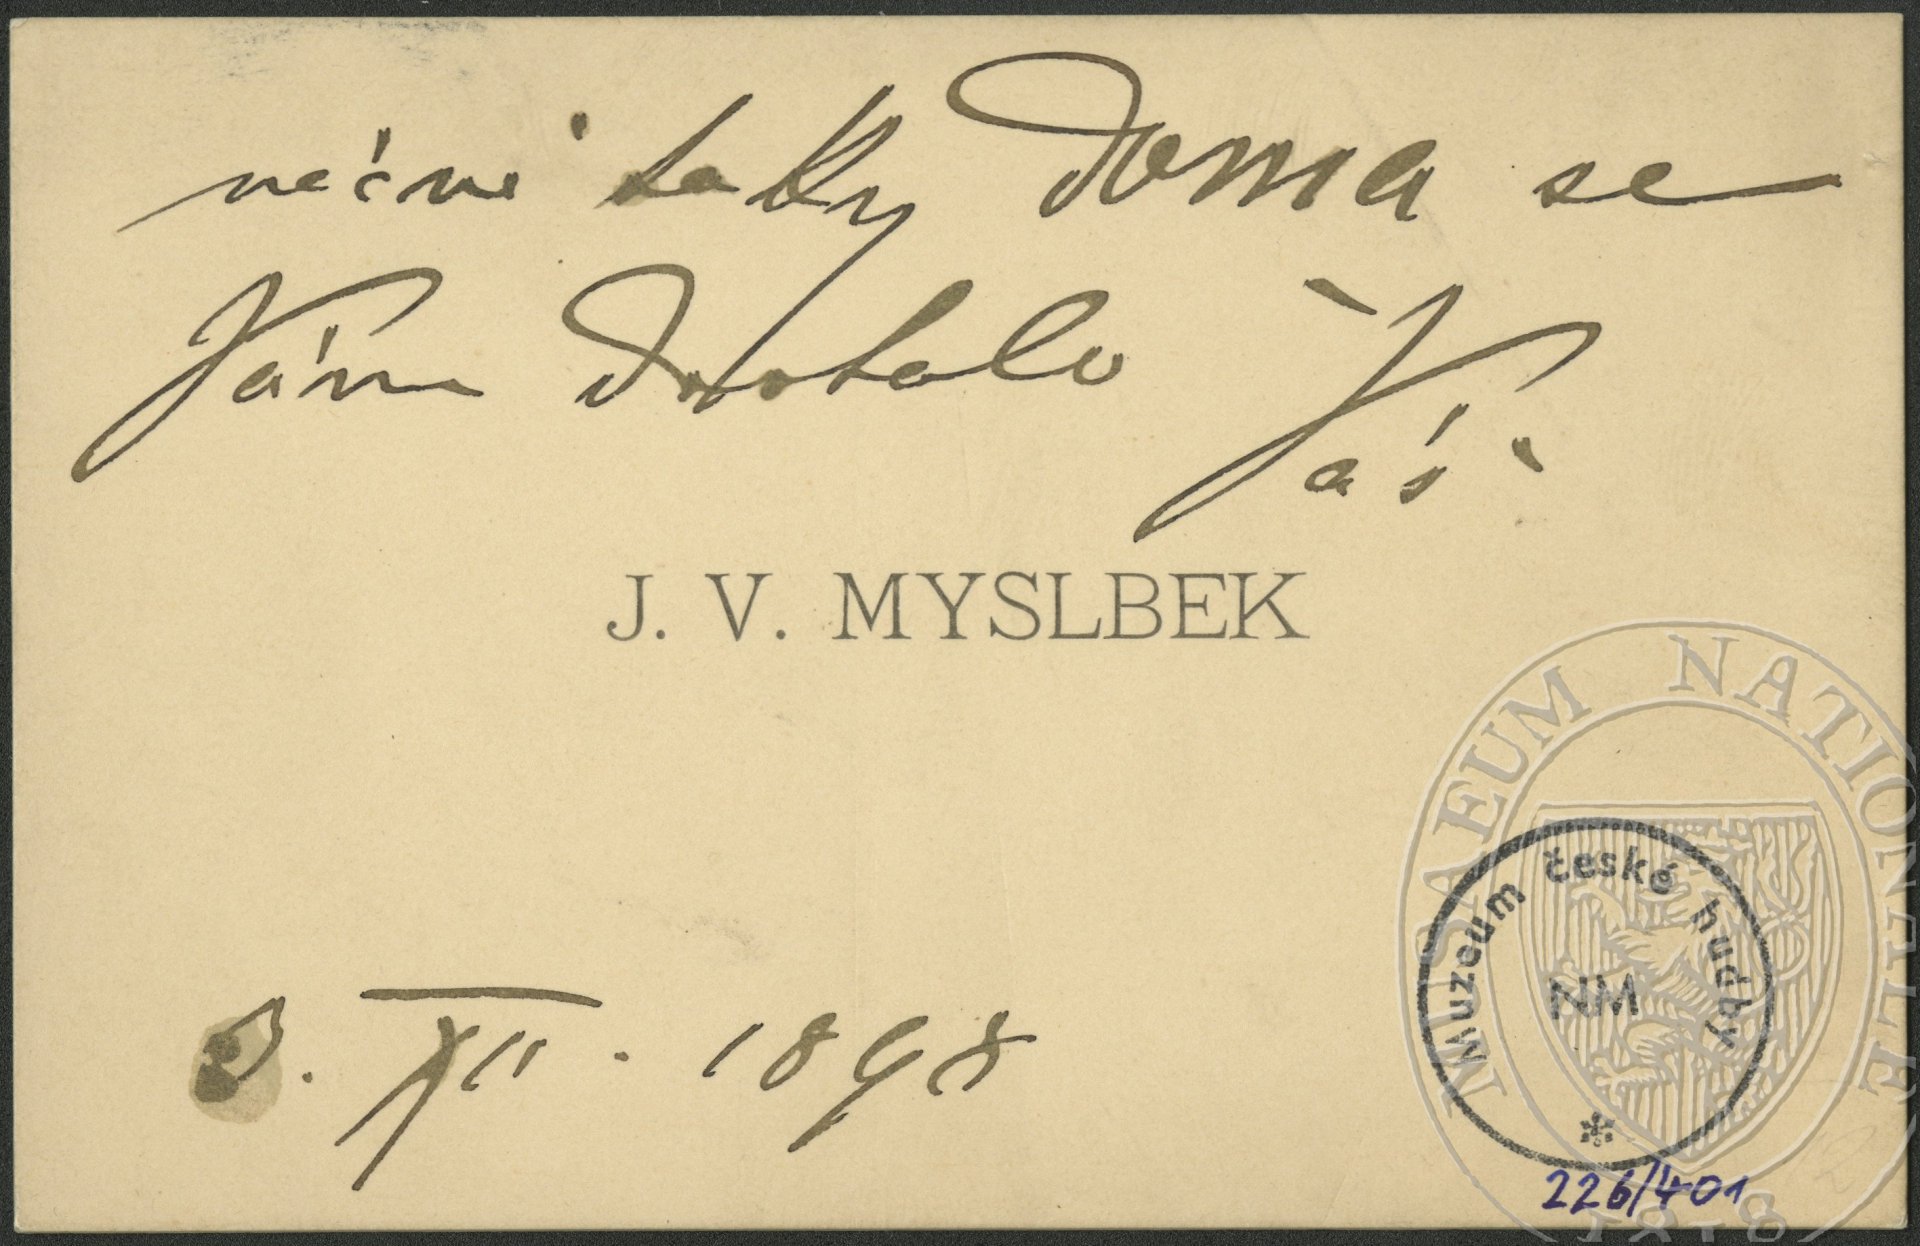 taky doma se
Vám dostalo Váš
J. V. MYSLBEK
3. XII. 1898
Muzeum české hudby
NM
226/401
MUSAEUM NATIONALE
1818